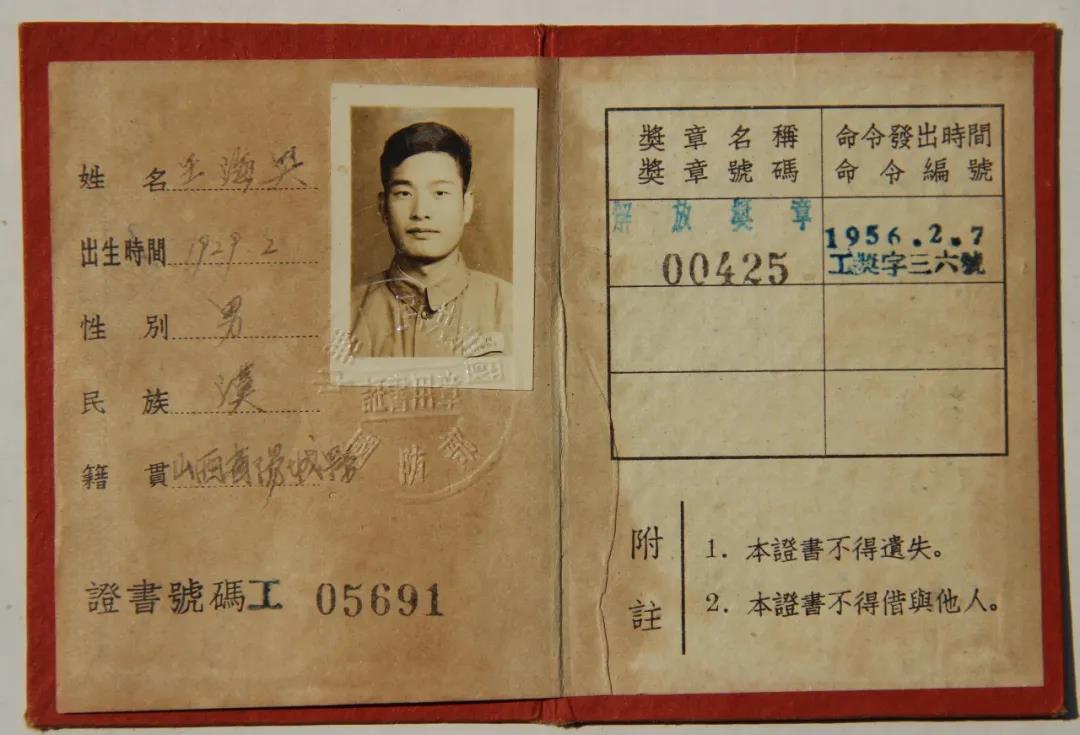 姓名 王海
出生時間 1929.2
性別 男
民族 漢
籍貫 山西省陽城縣
國防部
証書用章
證書號碼工 05691
獎章名稱
獎章號碼
命令發出時間
命令編號
解放獎章
00425
1956.2.7
工獎字三六號
附註
1. 本證書不得遺失。
2. 本證書不得借與他人。